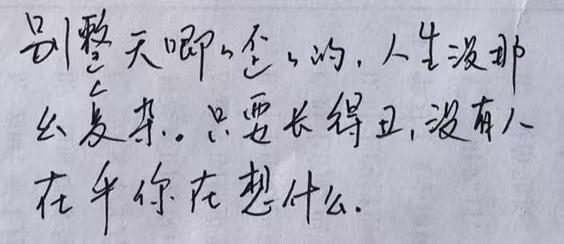 别整天唧々歪々的，人生没那
么复杂。只要长得丑，没有人
在乎你在想什么.